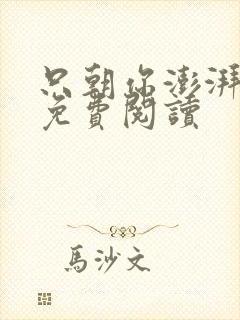 只朝你澎湃
免費閱讀
馬沙文